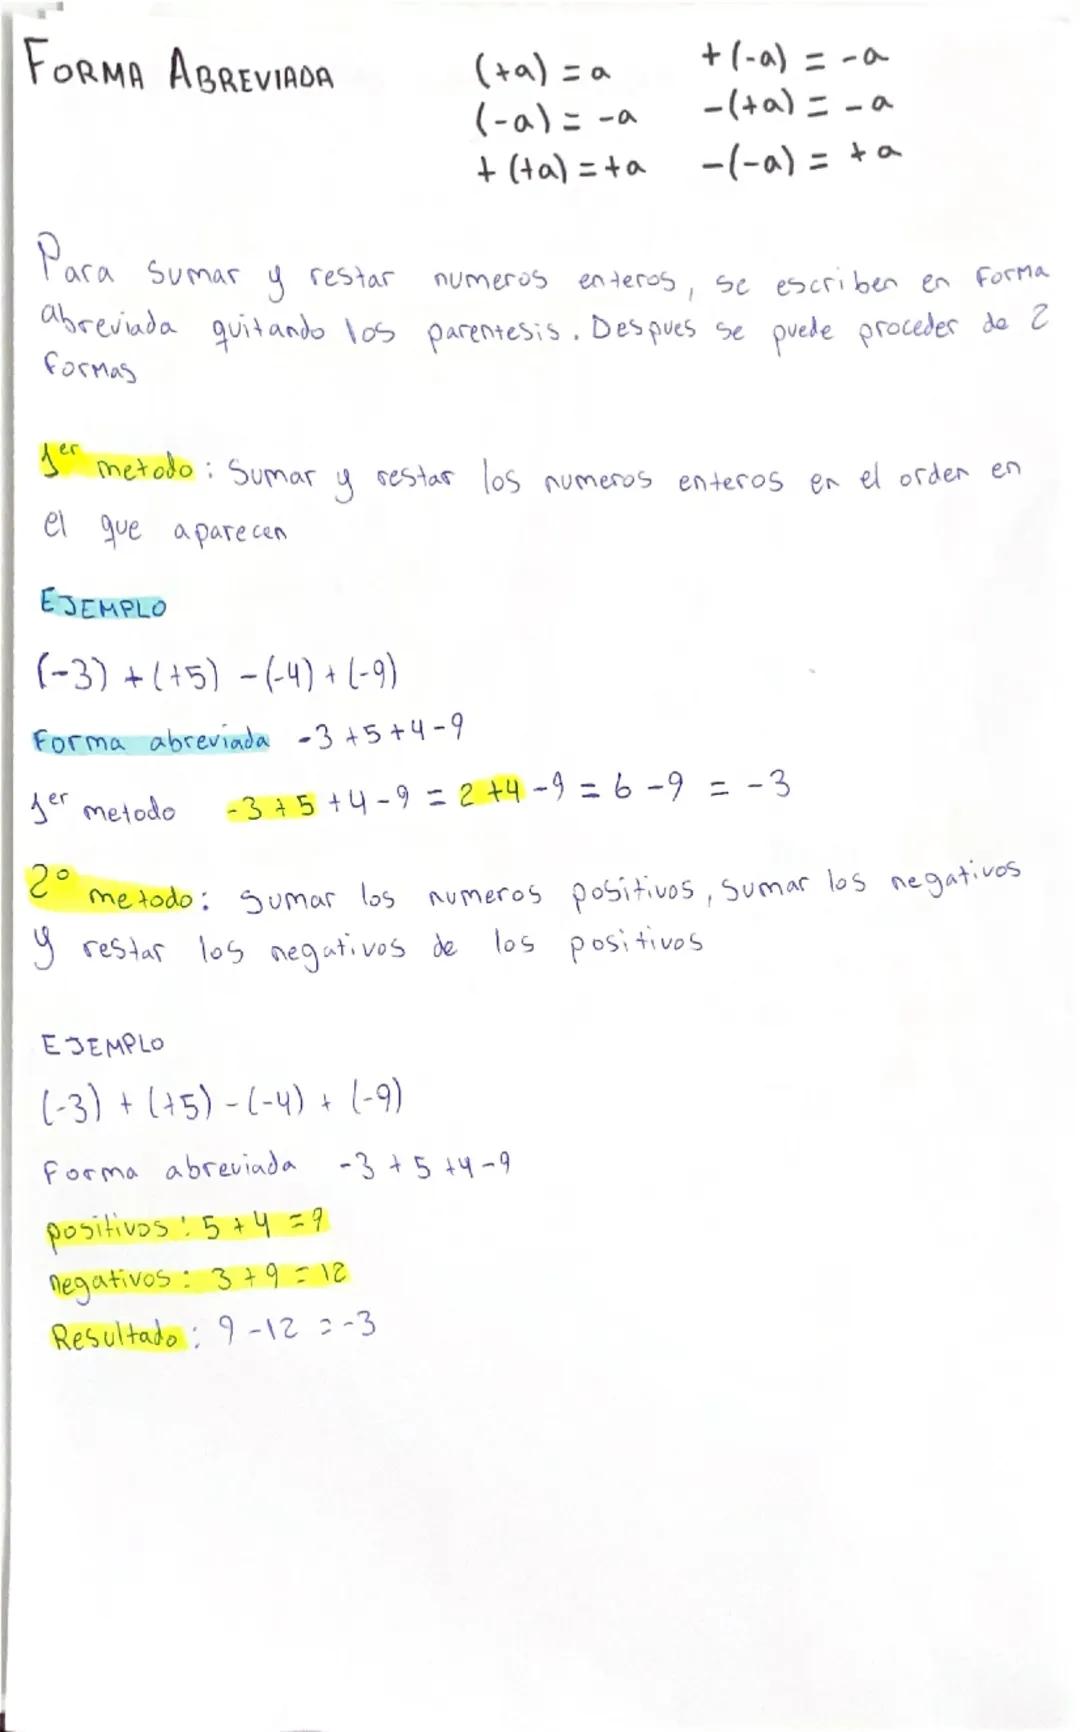 FORMA ABREVIADA
(+a) = a
(-a) = -a
+ (+a) = +a
+(-a) = -a
-(+a) = -a
-(-a) = +a
Para sumar y restar numeros enteros, se escriben en forma
abreviada quitando los parentesis. Despues se puede proceder de 2
formas
1er metodo: Sumar y restar los numeros enteros en el orden en
el que aparecen
EJEMPLO
(-3) + (+5) - (-4) + (-9)
Forma abreviada -3 +5 +4 -9
1er metodo -3 + 5 + 4 - 9 = 2 +4 -9 = 6 -9 = -3
2º metodo: Sumar los numeros positivos, sumar los negativos
y restar los negativos de los positivos
EJEMPLO
(-3) + (+5) - (-4) + (-9)
Forma abreviada -3 + 5 +4 -9
positivos: 5 + 4 = 9
negativos: 3 + 9 = 12
Resultado: 9 -12 = -3